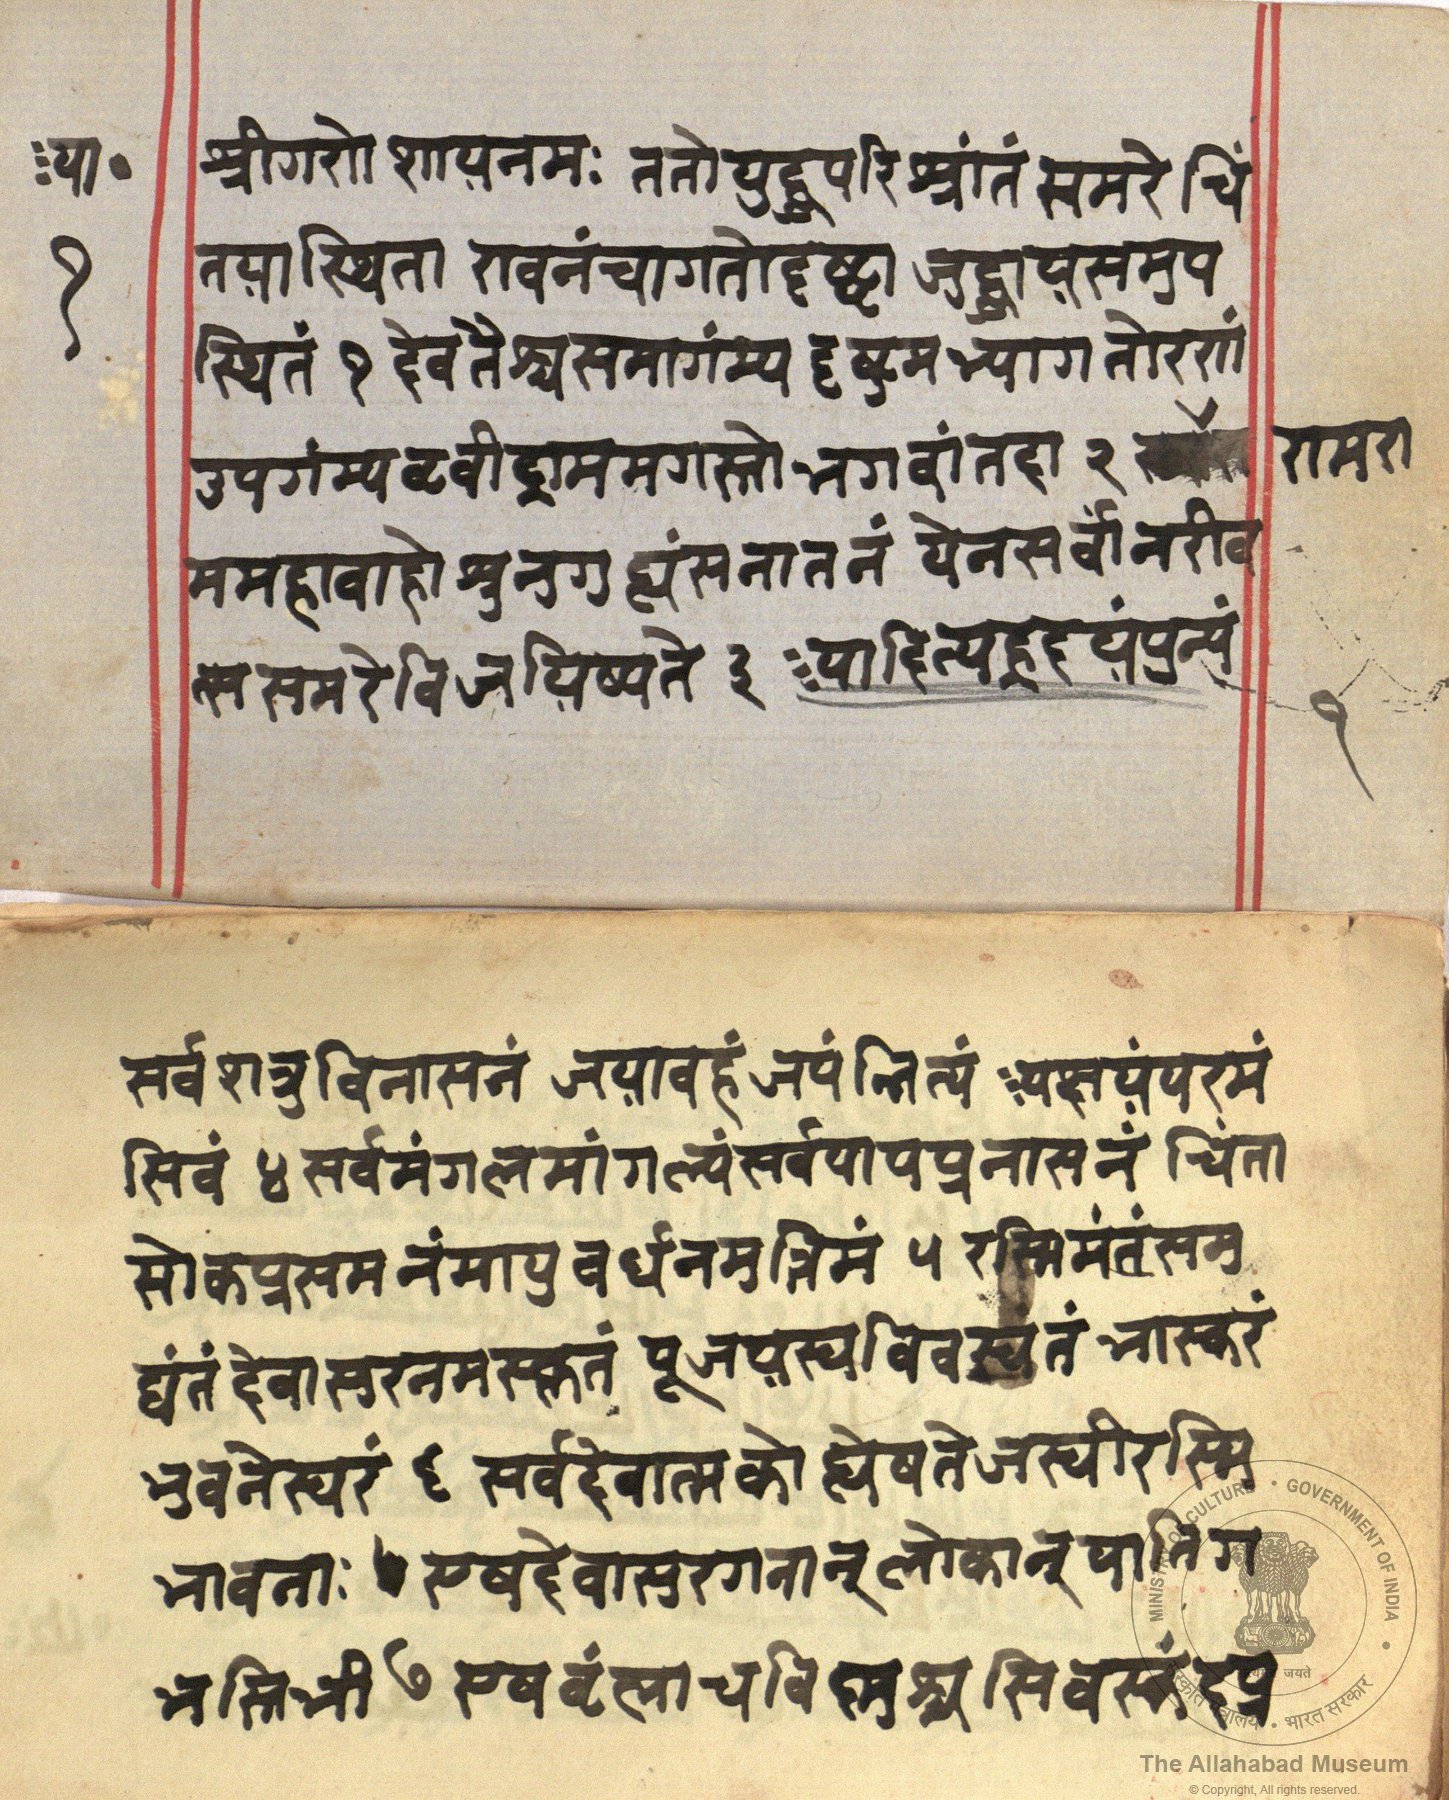 आ॰
१
श्रीगणेशायनमः ततोयुद्धपरिश्रांतं समरे चिं
तयास्थिता रावनंचागतोदृष्ट्वा जुद्धायसमुप
स्थितं १ देवतैश्चसमागंम्य दृष्टुमभ्यागतोरणं
उपगंम्यब्रवीद्राममगस्तो भगवांतदा २ रामरा
ममहाबाहो श्रुनुगुह्यंसनातनं येनसर्वानरीव
त्स समरेविजयिष्यते ३ आदित्यहृदयंपुन्यं
१
सर्वशत्रुविनासनं जयावहंजपंन्नित्यं अक्षयंपरमं
सिवं ४ सर्वमंगलमांगल्यंसर्वपापप्रनासनं चिंता
सोकप्रसमनंमायुवर्धनमुत्तिमं ५ रस्मिमंतंसमु
द्यंतं देवासुरनमस्कृतं पूजयस्यविवस्वंतं भास्करं
भुवनेस्वरं ६ सर्वदेवात्मकोह्येषतेजस्वीरस्मि
भावनाः एषदेवासुरगनान्लोकान्पातिग
भस्तिभी ७ एषब्रंह्माचविस्नुश्च सिवस्कंदप्र
MINISTRY OF CULTURE • GOVERNMENT OF INDIA •
संस्कृति मंत्रालय • भारत सरकार
सत्यमेव जयते
The Allahabad Museum
© Copyright, All rights reserved.